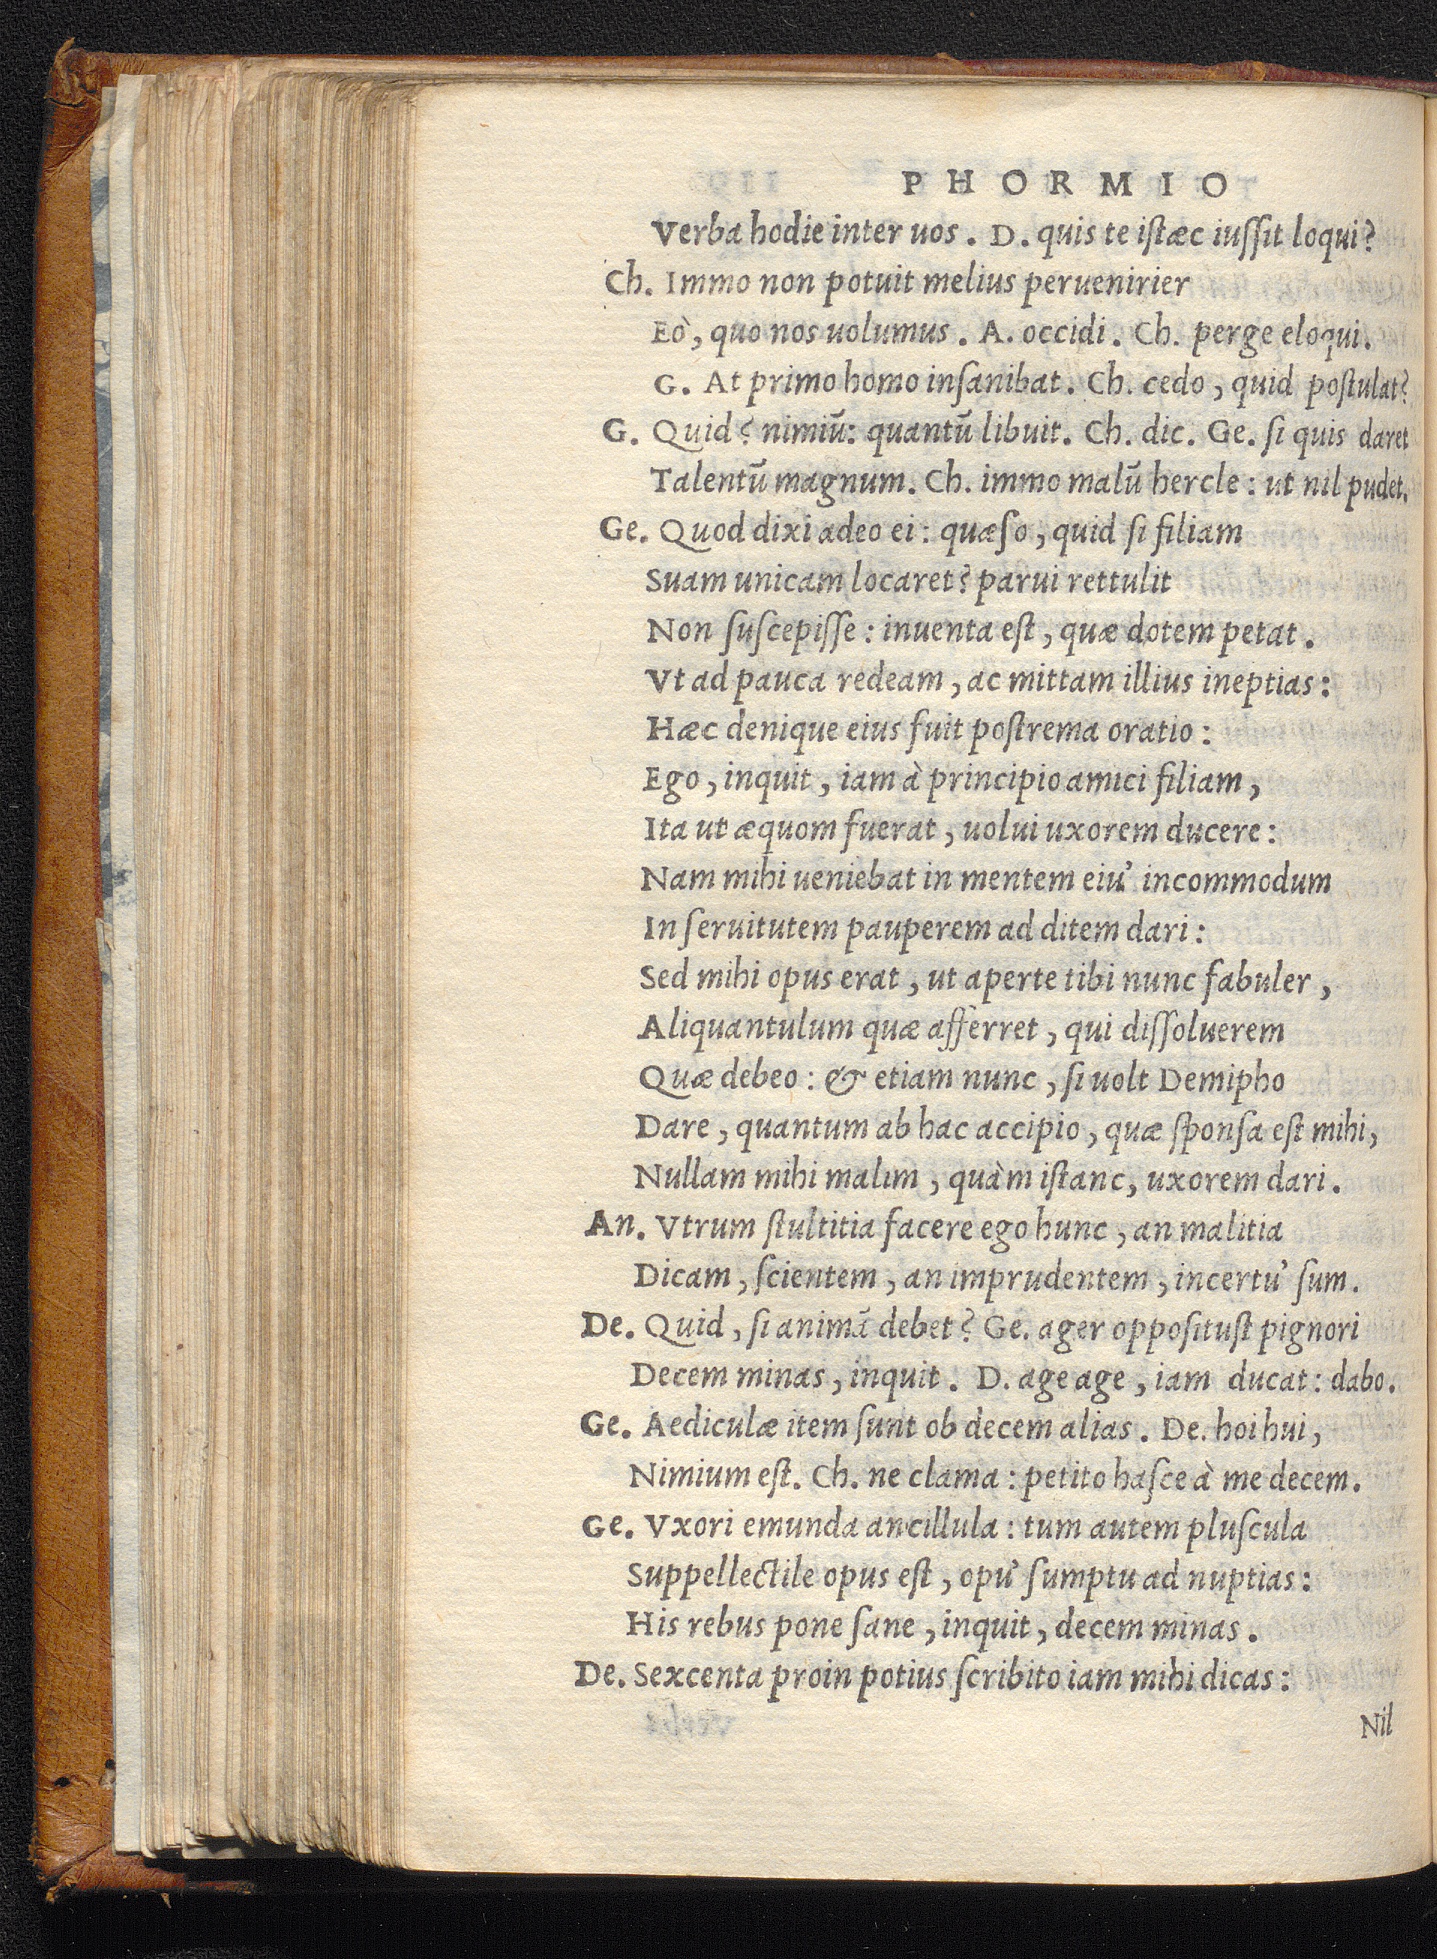 PHORMIO
Verba hodie inter uos. D. quis te istæc iussit loqui?
Ch. Immo non potuit melius peruenirier
Eò, quo nos uolumus. A. occidi. Ch. perge eloqui.
G. At primo homo insanibat. Ch. cedo, quid postulat?
G. Quid? nimiū: quantū libuit. Ch. dic. Ge. si quis daret
Talentū magnum. Ch. immo malū hercle: ut nil pudet.
Ge. Quod dixi adeo ei: quæso, quid si filiam
Suam unicam locaret? parui rettulit
Non suscepisse: inuenta est, quæ dotem petat.
Vt ad pauca redeam, ac mittam illius ineptias:
Hæc denique eius fuit postrema oratio:
Ego, inquit, iam à principio amici filiam,
Ita ut æquom fuerat, uolui uxorem ducere:
Nam mihi ueniebat in mentem eiu' incommodum
In seruitutem pauperem ad ditem dari:
Sed mihi opus erat, ut aperte tibi nunc fabuler,
Aliquantulum quæ afferret, qui dissoluerem
Quæ debeo: & etiam nunc, si uolt Demipho
Dare, quantum ab hac accipio, quæ sponsa est mihi,
Nullam mihi malim, quàm istanc, uxorem dari.
An. Vtrum stultitia facere ego hunc, an malitia
Dicam, scientem, an imprudentem, incertu' sum.
De. Quid, si animā debet? Ge. ager oppositust pignori
Decem minas, inquit. D. age age, iam ducat: dabo.
Ge. Aediculæ item sunt ob decem alias. De. hoi hui,
Nimium est. Ch. ne clama: petito hasce à me decem.
Ge. Vxori emunda ancillula: tum autem pluscula
Suppellectile opus est, opu' sumptu ad nuptias:
His rebus pone sane, inquit, decem minas.
De. Sexcenta proin potius scribito iam mihi dicas:
Nil